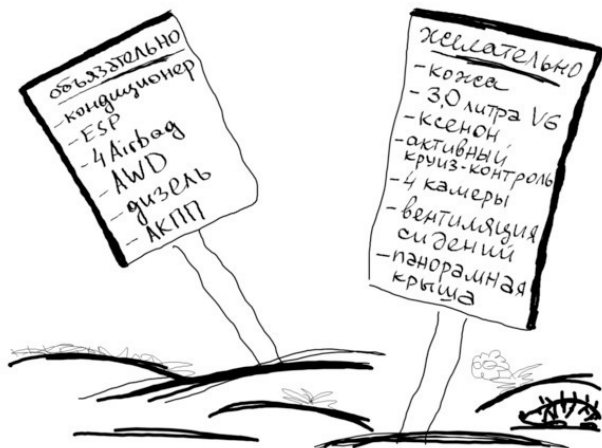 объязательно
-кондиционер
-ESP
-4 Airbag
-AWD
-дизель
-АКПП
желательно
-кожа
-3,0 литра V6
-ксенон
-активный
круиз-контроль
-4 камеры
-вентиляция
сидений
-панорамная
крыша